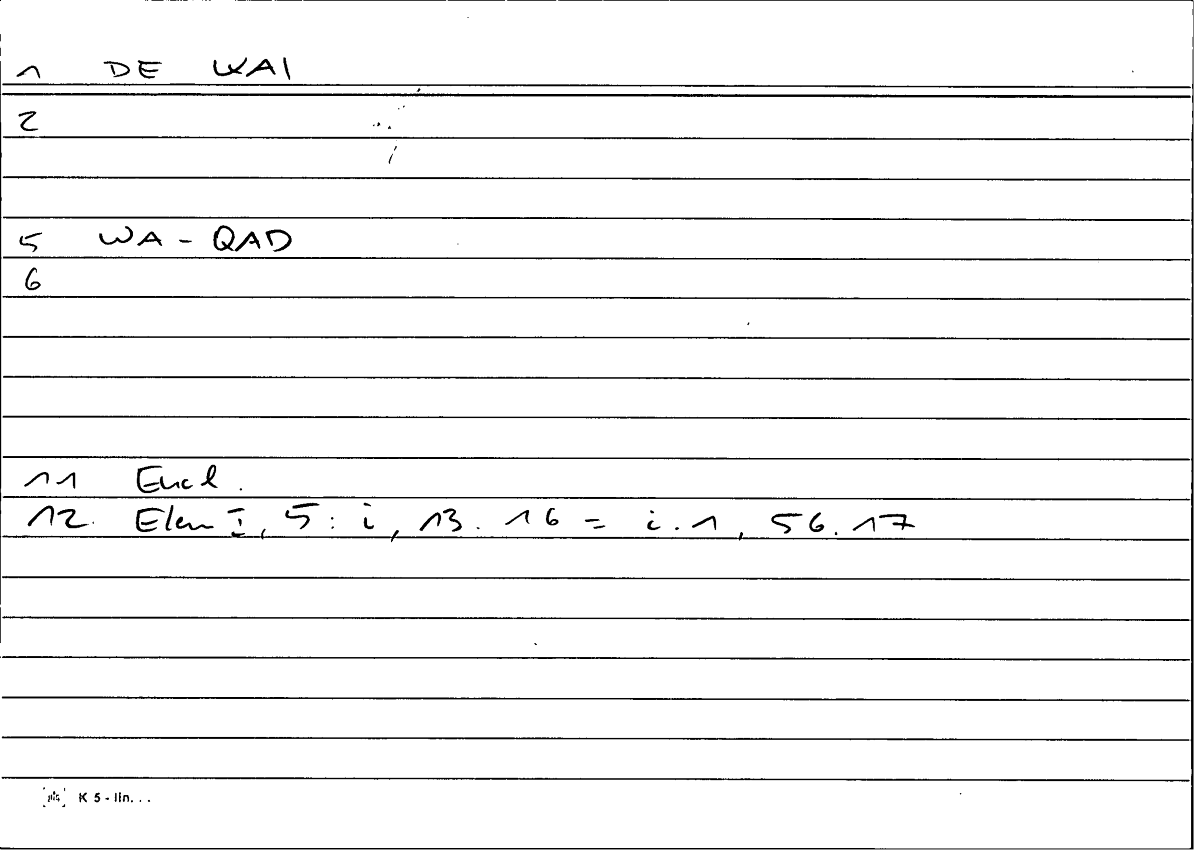 1 DE KAI
2
5 WA - QAD
6
11 Eucl.
12. Elem I, 5: i, 13. 16 = i. 1, 56. 17
K 5 - lin. . .